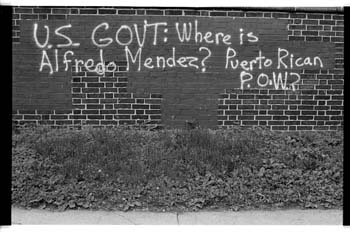 U.S. GOVT: Where is
Alfredo Mendez? Puerto Rican
P.O.W.?